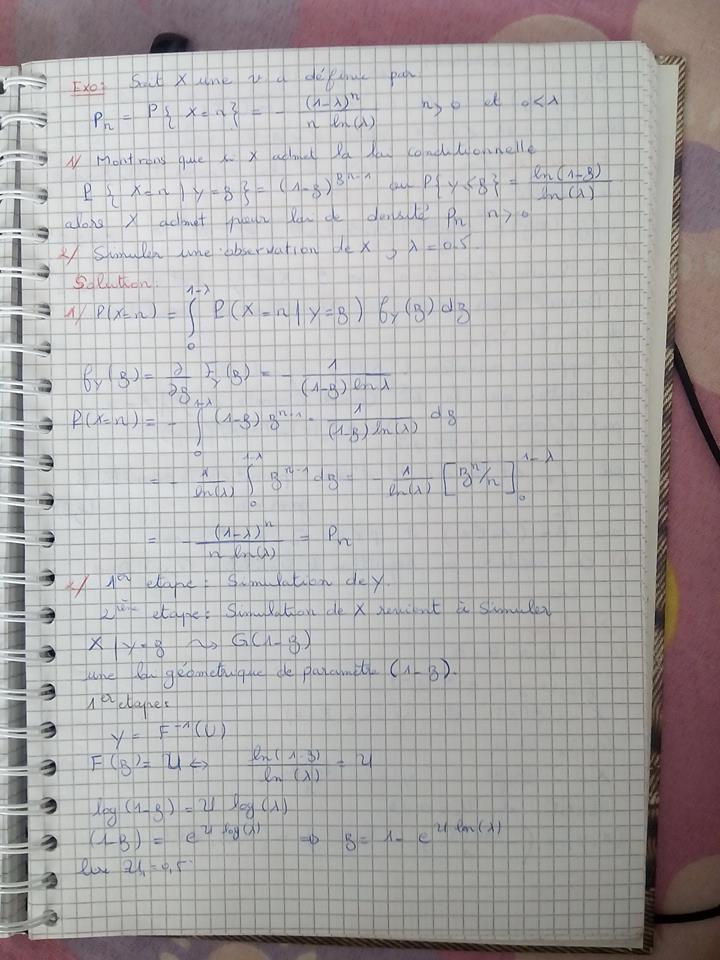 Exo: Soit X une v a définie par
Pn = P{ X=n} = - (1-λ)^n / (n ln(λ)) n>0 et 0<λ
1/ Montrons que si X admet la loi conditionnelle
P{ X=n | Y=z} = (1-z) z^(n-1) ou P{ Y<z} = ln(1-z) / ln(λ)
alors X admet pour loi de densité Pn n>0
2/ Simuler une observation de X , λ=0,5.
Solution.
1/ P(X=n) = ∫_0^(1-λ) P(X=n | Y=z) f_Y(z) dz
f_Y(z) = ∂/∂z F_Y(z) = - 1 / ((1-z) ln λ)
P(X=n) = - ∫_0^(1-λ) (1-z) z^(n-1) · 1 / ((1-z) ln(λ)) dz
= - 1/ln(λ) ∫_0^(1-λ) z^(n-1) dz = - 1/ln(λ) [z^n/n]_0^(1-λ)
= - (1-λ)^n / (n ln(λ)) = Pn
2/ 1er etape: Simulation de Y.
2ième etape: Simulation de X revient à Simuler
X | Y=z ⤳ G(1-z)
une loi géometrique de paramètre (1-z).
1er etape:
Y = F^-1(U)
F(z) = U ⇔ ln(1-z) / ln(λ) = U
log(1-z) = U log(λ)
(1-z) = e^(U log(λ)) ⇒ z = 1- e^(U ln(λ))
U1 = 0,5